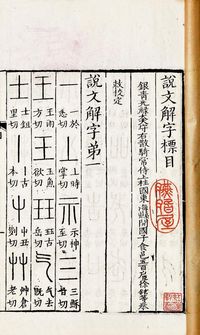 說文解字標目
銀青光祿大夫守右散騎常侍上柱國東海縣開國子食邑五百戶臣徐鉉等奉
敕校定
說文解字第一
一 一於悉切 上 上時掌切 示 示神至切 三 三穌甘切
王 王雨方切 玉 玉魚欲切 玨 玨古岳切 气 气去既切
士 士鉏里切 丨 丨古本切 屮 屮丑列切 艸 艸倉老切